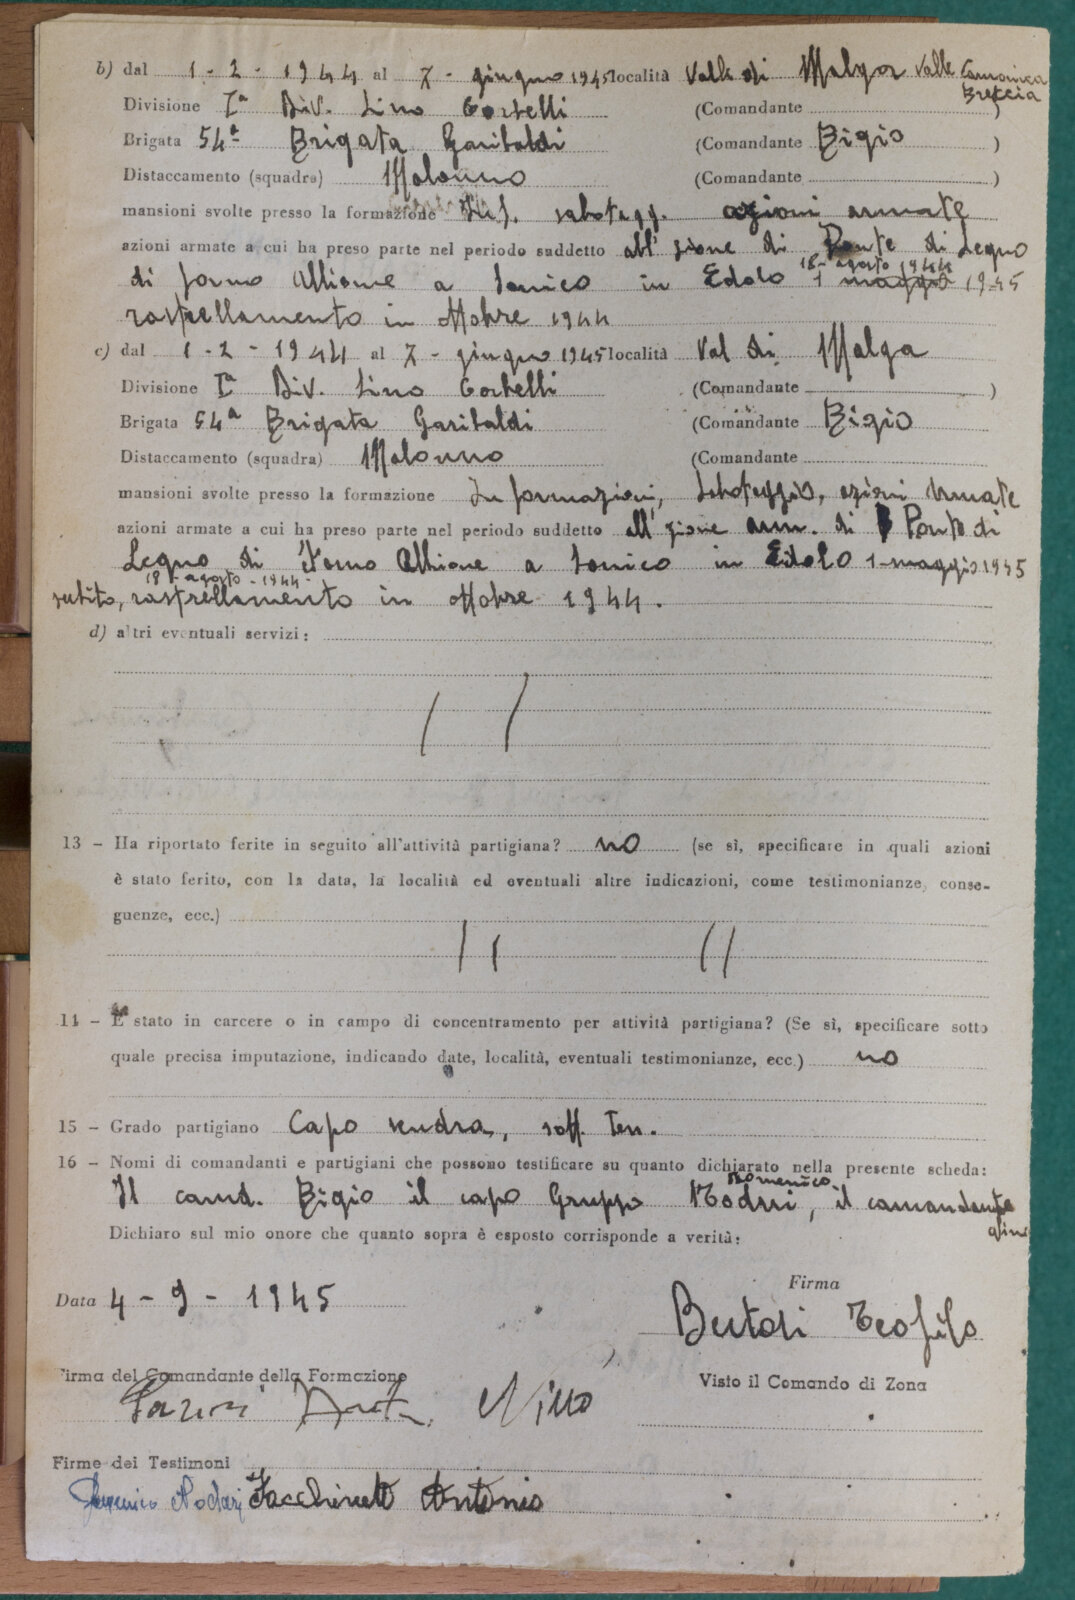 b) dal 1 - 2 - 1944 al 7 - giugno 1945 località Valle di Malga Valle Camonica
Brescia
Divisione Iª Div. Lino Corbelli (Comandante )
Brigata 54ª Brigata Garibaldi (Comandante Bigio )
Distaccamento (squadra) Malonno (Comandante )
mansioni svolte presso la formazione Inf. sabotagg. azioni armate
azioni armate a cui ha preso parte nel periodo suddetto all' zione di Ponte di Legno
18 - agosto 1944
di forno Allione a Sonico in Edolo 1 maggio 1945
rastrellamento in ottobre 1944
c) dal 1 - 2 - 1944 al 7 - giugno 1945 località Val di Malga
Divisione Iª Div. Lino Corbelli (Comandante )
Brigata 54ª Brigata Garibaldi (Comandante Bigio
Distaccamento (squadra) Malonno (Comandante
mansioni svolte presso la formazione Informazioni, Sabotaggio, azioni armate
azioni armate a cui ha preso parte nel periodo suddetto all' zione arm. di Ponte di
Legno di Forno Allione a Sonico in Edolo 1 - maggio 1945
18 - agosto - 1944 -
subito, rastrellamento in ottobre 1944.
d) altri eventuali servizi:
13 - Ha riportato ferite in seguito all'attività partigiana? no (se sì, specificare in quali azioni
è stato ferito, con la data, la località ed eventuali altre indicazioni, come testimonianze, conse-
guenze, ecc.)
14 - È stato in carcere o in campo di concentramento per attività partigiana? (Se sì, specificare sotto
quale precisa imputazione, indicando date, località, eventuali testimonianze, ecc.) no
15 - Grado partigiano Capo squadra, sott. Ten.
16 - Nomi di comandanti e partigiani che possono testificare su quanto dichiarato nella presente scheda:
Domenico
Il comd. Bigio il capo Gruppo Nodari, il comandante
Nino
Dichiaro sul mio onore che quanto sopra è esposto corrisponde a verità:
Firma
Data 4 - 9 - 1945
Bertoli Teofilo
Firma del Comandante della Formazione
Visto il Comando di Zona
Nino
Firme dei Testimoni
Domenico Nodari Facchinetti Antonio